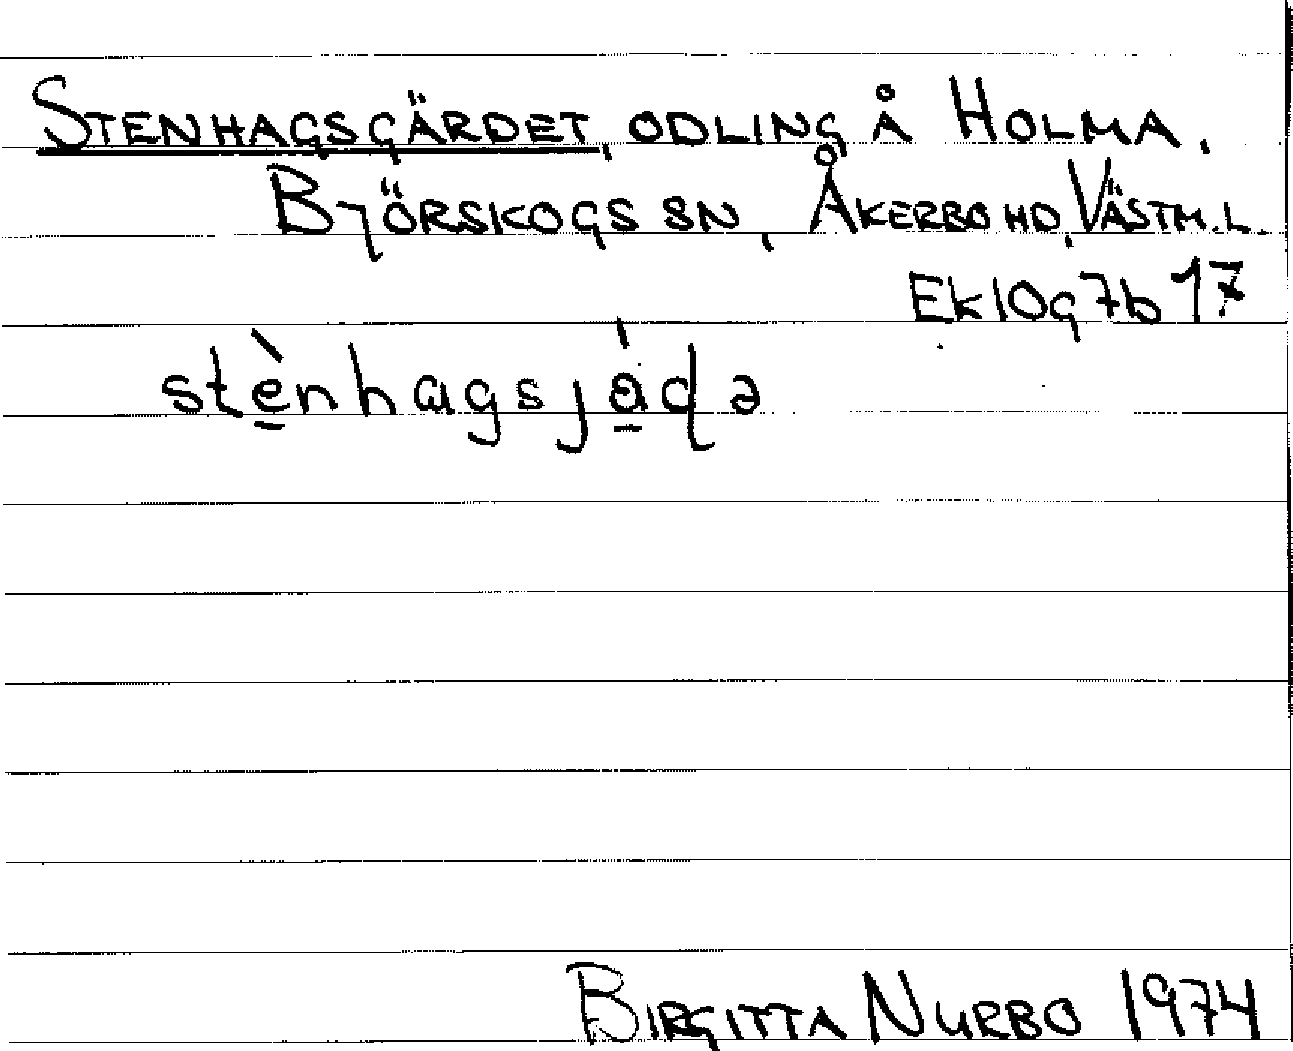 STENHAGSGÄRDET, ODLING Å HOLMA,
BJÖRSKOGS SN, ÅKERBO HD, VÄSTM.L.
Ek 10g7b 17
stènhagsjàɖə
BIRGITTA NURBO 1974